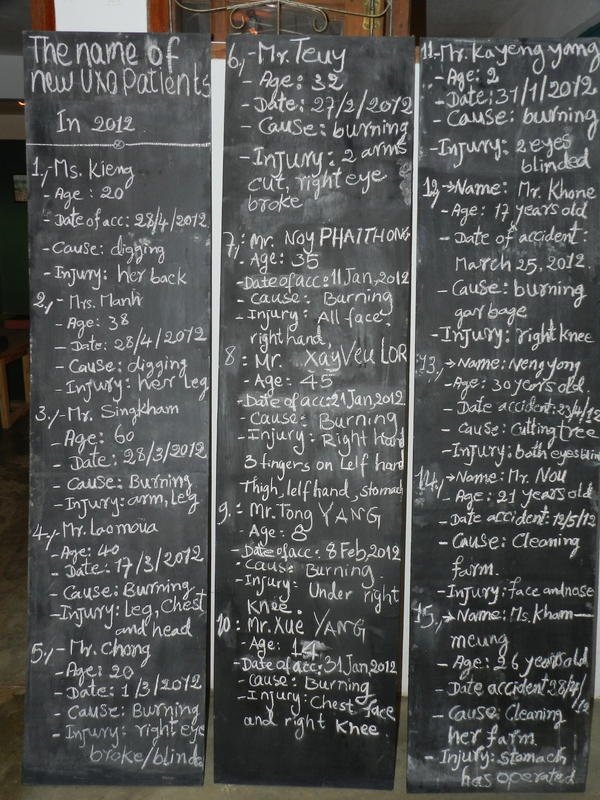 The name of
new UXO Patients
In 2012
1,- Ms. Kieng
- Age: 20
- Date of acc: 28/4/2012
- Cause: digging
- Injury: her back
2,- Mrs. Manh
- Age: 38
- Date: 28/4/2012
- Cause: digging
- Injury: her Leg
3,- Mr. Singkham
- Age: 60
- Date: 28/3/2012
- Cause: Burning
- Injury: arm, Leg
4,- Mr. Laomoua
- Age: 40
- Date: 17/3/2012
- Cause: Burning
- Injury: Leg, chest
and head
5,- Mr. Chong
- Age: 20
- Date: 1/3/2012
- Cause: Burning
- Injury: right eye
broke/blinded
6,- Mr. Teuy
- Age: 32
- Date: 27/2/2012
- Cause: burning
- Injury: 2 arms
cut, right eye
broke
7,: Mr. Noy PHAITHONG
- Age: 35
- Date of acc: 11 Jan, 2012
- cause: Burning
- Injury: All face,
right hand,
8: Mr. XayVeu LOR
- Age: 45
- Date of acc: 21 Jan, 2012
- Cause: Burning
- Injury: Right hand
3 fingers on Lelf hand
Thigh, lelf hand, stomach
9: Mr. Tong YANG
- Age: 8
- Date of acc: 8 Feb, 2012
- Cause: Burning
- Injury: Under right
Knee.
10: Mr. Xue YANG
- Age: 14
- Date of acc: 31 Jan, 2012
- Cause: Burning
- Injury: Chest face
and right Knee.
11- Mr. Kayeng yang
- Age: 2
- Date: 31/1/2012
- Cause: burning
- Injury: 2 eyes
blinded
12, → Name: Mr. Khone
- Age: 17 years old
- Date of accident:
March 25, 2012.
- Cause: burning
garbage
- Injury: right knee
13, → Name: Neng yong
- Age: 30 years old
- Date accident: 23/4/12
- Cause: Cutting tree
- Injury: both eyes blind
14, → Name: Mr. Nou
- Age: 21 years old
- Date accident: 12/5/12
- Cause: Cleaning
farm.
- Injury: face and nose
15, → Name: Ms. Kham-
meung
- Age: 26 years old
- Date accident 28/4/12
- Cause: Cleaning
her farm.
- Injury: stomach
has operated